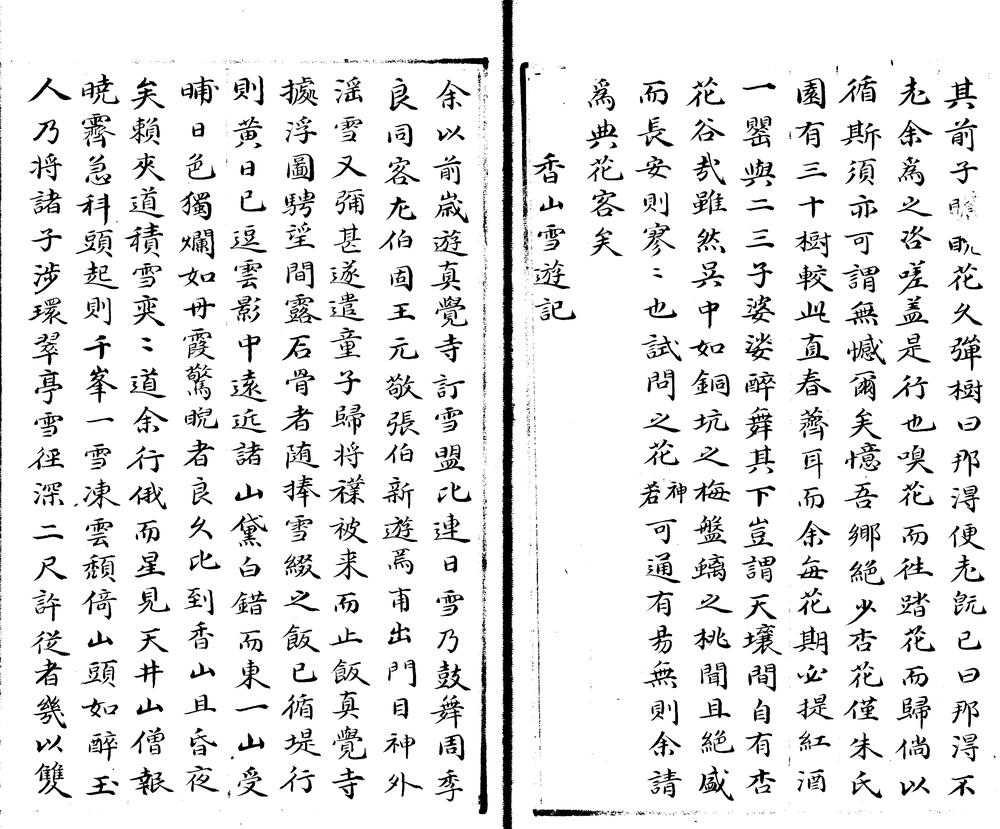 其前子瞻眎花久彈樹曰那淂便老旣已曰那淂不
老余爲之咨嗟盖是行也嗅花而徃踏花而歸倘以
循斯須亦可謂無憾爾矣憶吾鄉絕少杏花僅朱氏
園有三十樹較此直春薺耳而余每花期必提紅酒
一罌與二三子婆娑醉舞其下豈謂天壤間自有杏
花谷哉雖然吳中如銅坑之梅盤螭之桃聞且絕盛
而長安則寥〻也試問之花神若可通有昜無則余請
爲典花客矣
香山雪遊記
余以前歳遊真覺寺訂雪盟比連日雪乃鼓舞周季
良同客尤伯固王元敬張伯新遊焉甫出門目神外
滛雪又彌甚遂遣童子歸将襆被来而止飯真覺寺
擄浮圖騁望間露石骨者随捧雪綴之飯已循堤行
則黄日已逗雲影中遠近諸山黛白錯而東一山受
晡日色獨爛如丹霞驚睨者良久比到香山且昏夜
矣賴夾道積雪奕〻道余行俄而星見天井山僧報
曉霽急科頭起則千峯一雪凍雲頽倚山頭如醉玉
人乃将諸子涉環翠亭雪徑深二尺許從者幾以雙